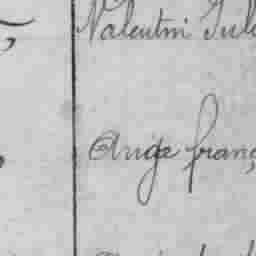 Valentini Jul
Ange franç